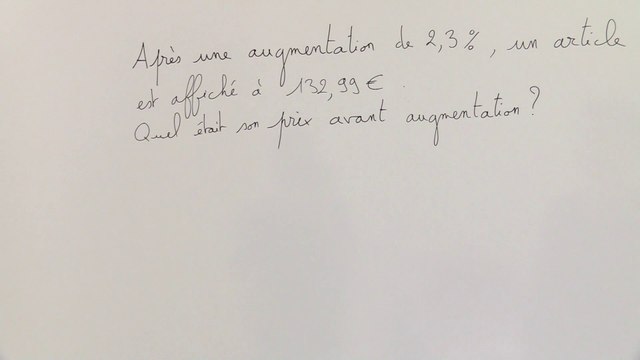 Après une augmentation de 2,3%, un article
est affiché à 132,99€.
Quel était son prix avant augmentation ?